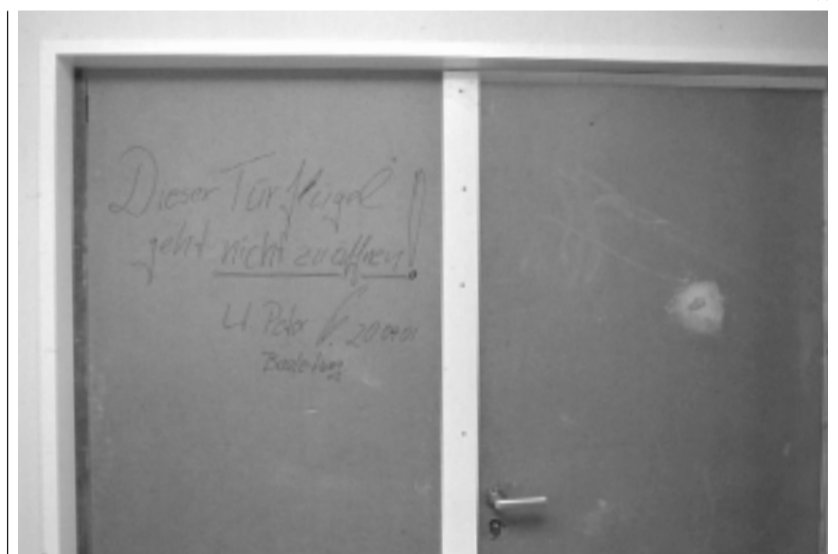 Dieser Türflügel
geht nicht zu öffnen!
20.04.01
Bauleitung